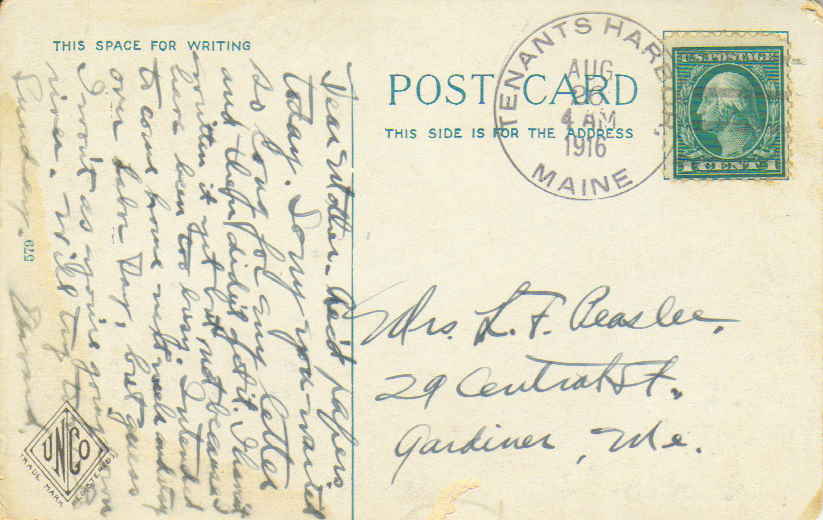 THIS SPACE FOR WRITING
POST CARD
THIS SIDE IS FOR THE ADDRESS
TENANTS HARBOR,
AUG
26
4 AM
1916
MAINE
U.S. POSTAGE
1 CENT 1
Dear Mother - Rec'd papers
today. Sorry you waited
so long for my letter
and then didn't get it. I haven't
written it yet but not because I
have been too busy. Intended
to come home next week and stay
over Labor Day, but guess
I won't as you're going down
river. Will try to
Sunday.
579
UNCO
TRADE MARK
REGISTERED
Mrs. L. F. Peaslee,
29 Central St.,
Gardiner, Me.